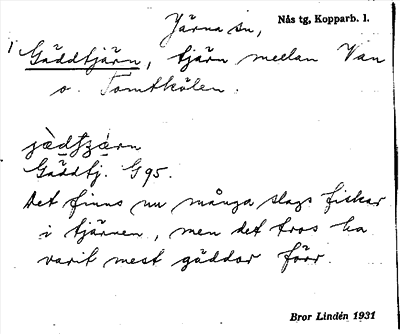 Järna sn, Nås tg, Kopparb. l.
1 Gäddtjärn, tjärn mellan Van
o. Tomtkölen.
Gäddtj. G95.
Det finns nu många slags fiskar
i tjärnen, men det tros ha
varit mest gäddor förr.
Bror Lindén 1931